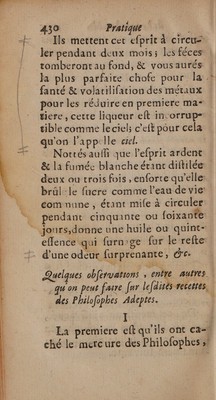 430 Pratique
Ils mettent cet esprit à circu-
ler pendant deux mois; les féces
tomberont au fond, & vous aurés
la plus parfaite chose pour la
santé & volatilisation des métaux
pour les réduire en premiere ma-
tiere, cette liqueur est in orrup-
tible comme le ciel; c'est pour cela
qu'on l'appelle ciel.
Nottés aussi que l'esprit ardent
& la fumée blanche étant distilée
deux ou trois fois, ensorte qu'elle
brûl le sucre comme l'eau de vie
com nune, étant mise à circuler
pendant cinquante ou soixante
jours, donne une huile ou quint-
essence qui surnage sur le reste
d'une odeur surprenante, &c.
Quelques observations, entre autres
qu'on peut faire sur lesdites recettes
des Philosophes Adeptes.
I
La premiere est qu'ils ont ca-
ché le mercure des Philosophes,